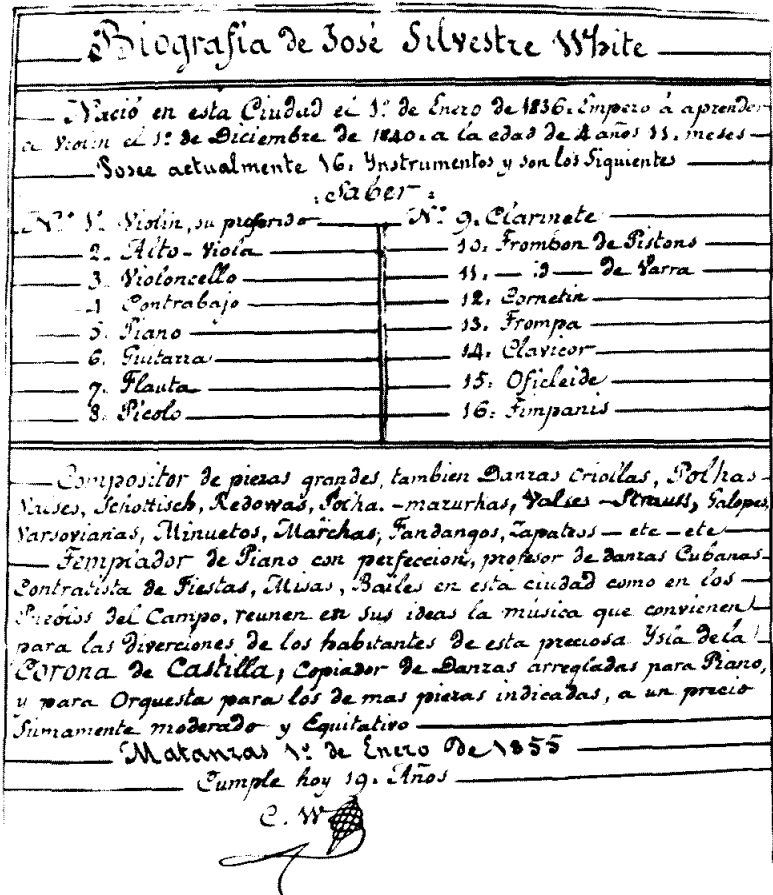 Biografía de José Silvestre White
Nació en esta Ciudad el 1º de Enero de 1836. Empero à aprender
el Violin el 1º de Diciembre de 1840. a la edad de 4 años 11. meses
Posee actualmente 16. Ynstrumentos y son los Siguientes
Saber
Nº 1º Violin, su preferido
2. Alto-Viola
3. Violoncello
4 Contrabajo
5. Piano
6. Guitarra
7. Flauta
8. Picolo
Nº 9. Clarinete
10. Trombon de Pistons
11. — id — de Varra
12. Cornetin
13. Trompa
14. Clavicor
15. Oficleide
16. Timpanis
Compositor de piezas grandes, tambien Danzas Criollas, Polkas
Valses, Schottisch, Redowas, Polka.-mazurkas, Valses-Strauss, Galopes,
Varsovianas, Minuetos, Marchas, Fandangos, Zapateos — etc — etc
Templador de Piano con perfeccion, profesor de danzas Cubanas
Contratista de Fiestas, Misas, Bailes en esta ciudad como en los
Pueblos del Campo, reunen en sus ideas la música que convienen
para las diverciones de los habitantes de esta preciosa Ysla de la
Corona de Castilla; Copiador de Danzas arregladas para Piano,
y para Orquesta para los de mas piezas indicadas, a un precio
Sumamente moderado y Equitativo
Matanzas 1º de Enero De 1855
Cumple hoy 19. Años
C. W